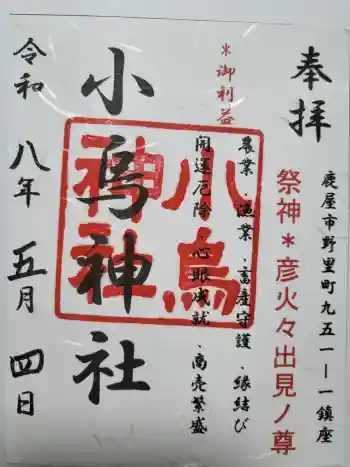 奉拝
鹿屋市野里町九五一一一鎮座
祭神＊彦火々出見ノ尊
＊御利益
農業、漁業、畜産守護、縁結び
開運厄除、心眼成就、商売繁盛
小烏神社
小烏神社
令和八年五月四日